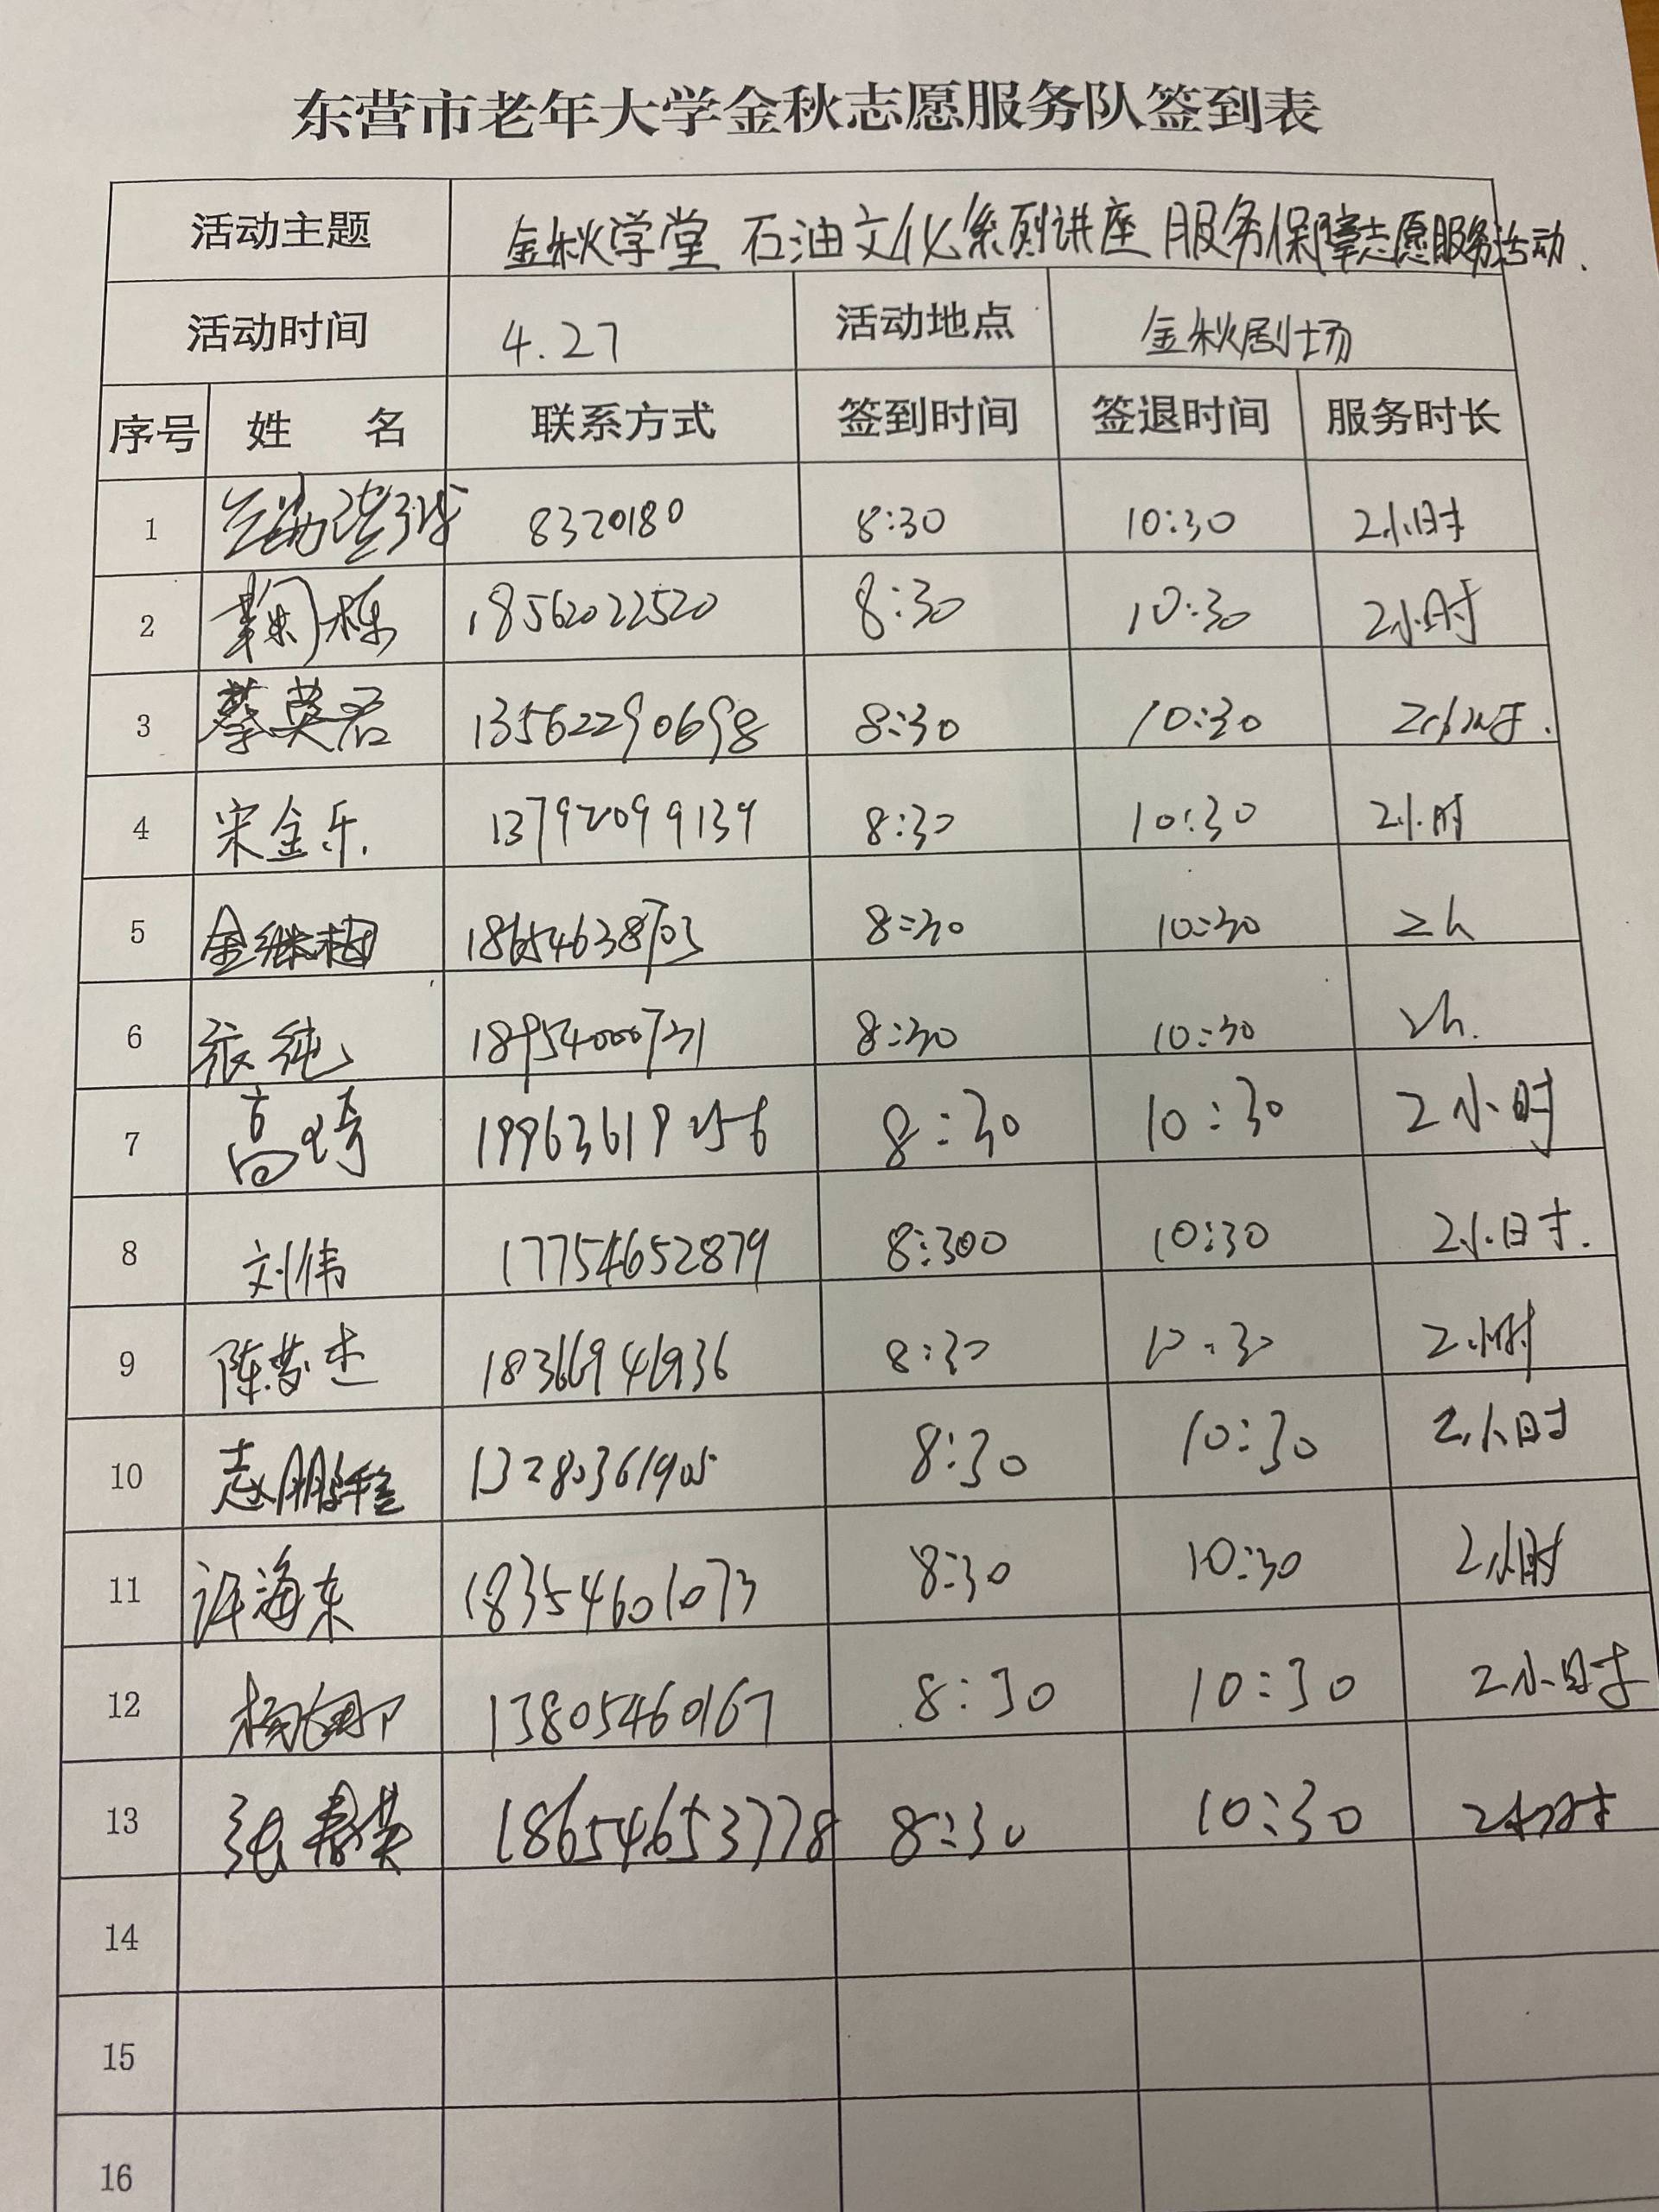 东营市老年大学金秋志愿服务队签到表
活动主题 金秋学堂 石油文化系列讲座 服务保障志愿服务活动.
活动时间 4.27 活动地点 金秋剧场
序号 姓 名 联系方式 签到时间 签退时间 服务时长
1 8320180 8:30 10:30 2小时
2 鞠栋 18562022520 8:30 10:30 2小时
3 蔡英君 13562290698 8:30 10:30 2小时.
4 宋金乐. 13792099139 8:30 10:30 2小时
5 金继 8:30 10:30 2h
6 张纯 18954000731 8:30 10:30 2h.
7 高琦 19963619256 8:30 10:30 2小时
8 刘伟 17754652879 8:300 10:30 2小时.
9 陈梦杰 18366946936 8:30 10:30 2小时
10 赵鹏程 13280361905 8:30 10:30 2小时
11 许海东 18354601073 8:30 10:30 2小时
12 杨娜 13805460167 8:30 10:30 2小时
13 张春英 18654653778 8:30 10:30 2小时
14
15
16